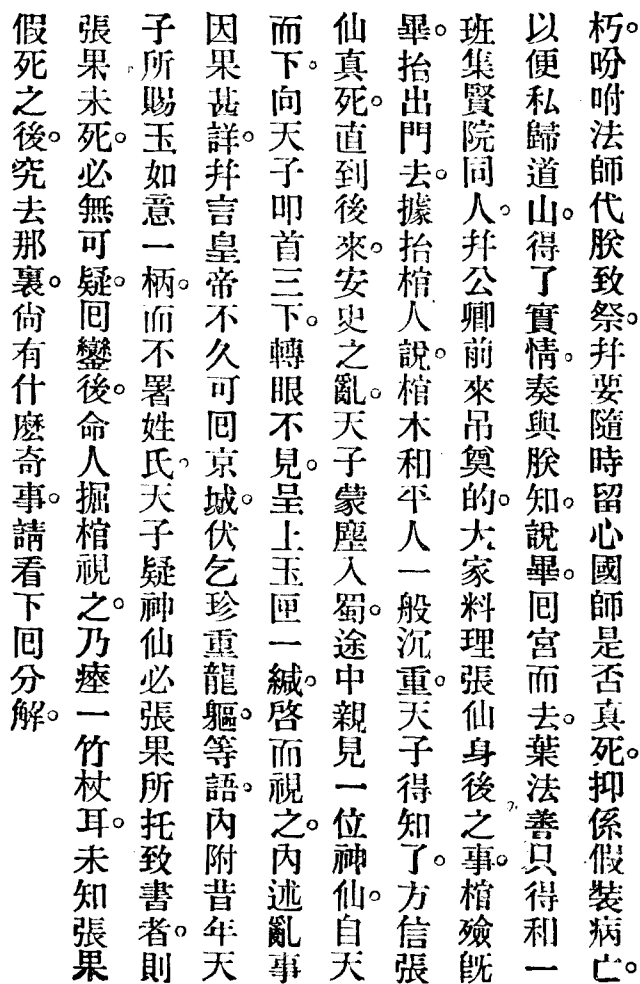 朽。吩咐法師代朕致祭。幷要隨時留心國師是否真死。抑係假裝病亡。
以便私歸道山。得了實情。奏與朕知。說畢。囘宮而去。葉法善只得和一
班集賢院同人。幷公卿前來吊奠的。大家料理張仙身後之事。棺殮旣
畢。抬出門去。據抬棺人說。棺木和平人一般沉重。天子得知了。方信張
仙真死。直到後來。安史之亂。天子蒙塵入蜀。途中親見一位神仙。自天
而下。向天子叩首三下。轉眼不見。呈上玉匣一緘。啓而視之。內述亂事
因果甚詳。幷言皇帝不久可囘京城。伏乞珍重龍軀。等語。內附昔年天
子所賜玉如意一柄。而不署姓氏。天子疑神仙必張果所托致書者。則
張果未死。必無可疑。囘鑾後。命人掘棺視之。乃瘞一竹杖耳。未知張果
假死之後。究去那裏。尙有什麽奇事。請看下囘分解。